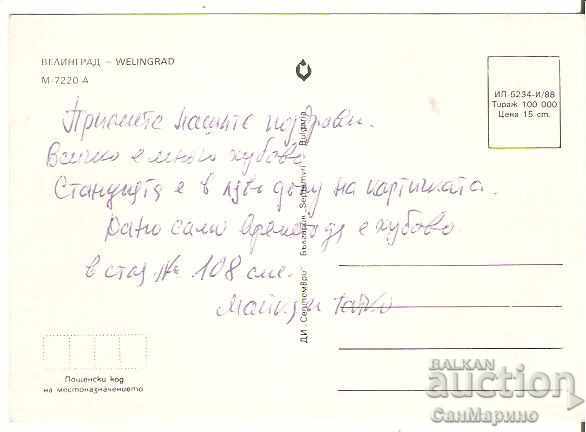 ВЕЛИНГРАД – WELINGRAD
М-7220 А
ИП 5234-И/88
Тираж 100 000
Цена 15 ст.
Приемете нашите поздрави.
Всичко е много хубаво
Станцията е в ляво долу на картичката.
Дано само времето да е хубаво
в стая № 108 сме.
Майка и Татко
ДИ „Септември" България „Septemvri" Bulgaria
Пощенски код
на местоназначението
BALKAN
auction
СанМарино